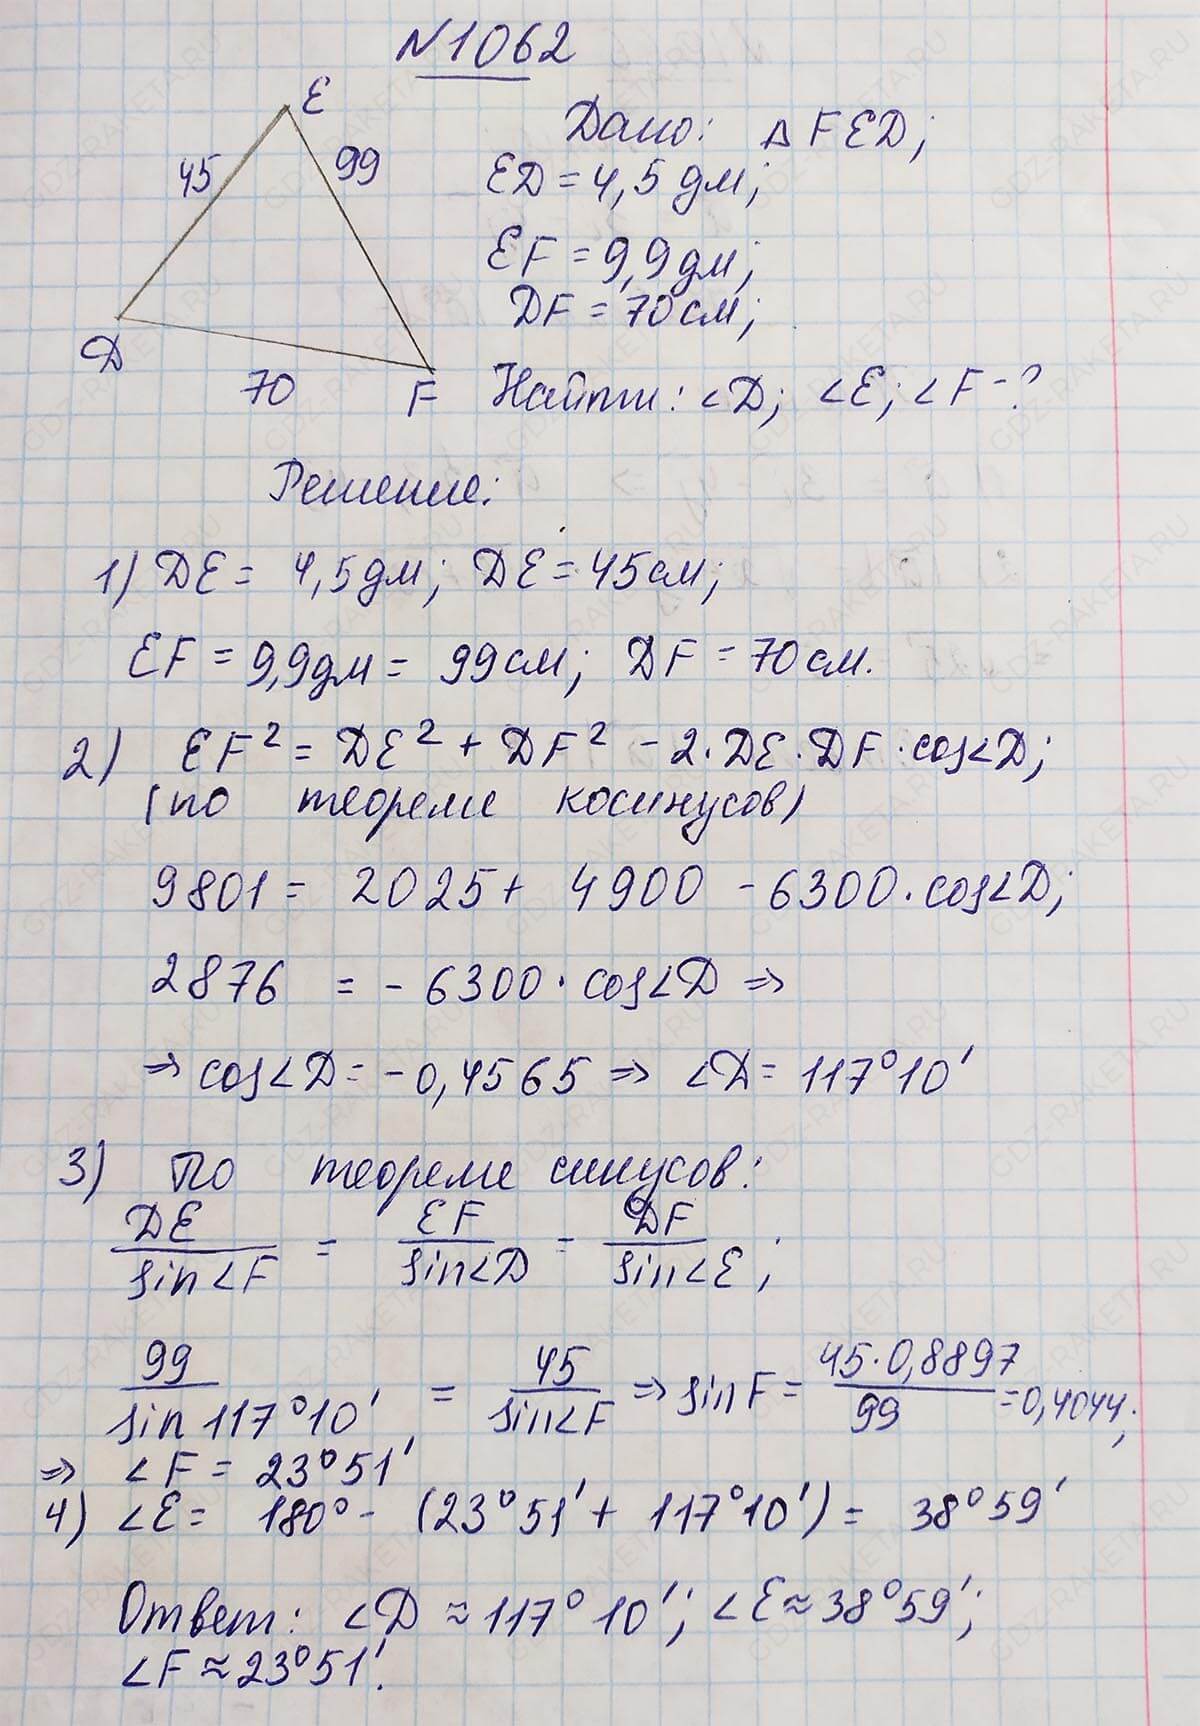 N1062
E
45
99
D
70
F
Дано: △FED;
ED = 4,5 дм;
EF = 9,9 дм;
DF = 70 см;
Найти: ∠D; ∠E; ∠F - ?
Решение:
1) DE = 4,5 дм; DE = 45 см;
EF = 9,9 дм = 99 см; DF = 70 см.
2) EF² = DE² + DF² - 2·DE·DF·cos∠D;
(по теореме косинусов)
9801 = 2025 + 4900 - 6300·cos∠D;
2876 = - 6300·cos∠D ⇒
⇒ cos∠D = - 0,4565 ⇒ ∠D = 117°10′
3) По теореме синусов:
DE/sin∠F = EF/sin∠D = DF/sin∠E;
99/sin117°10′ = 45/sin∠F ⇒ sinF = 45·0,8897/99 = 0,4044;
⇒ ∠F = 23°51′
4) ∠E = 180° - (23°51′ + 117°10′) = 38°59′
Ответ: ∠D ≈ 117°10′; ∠E ≈ 38°59′;
∠F ≈ 23°51′.
GDZ-RAKETA.RU